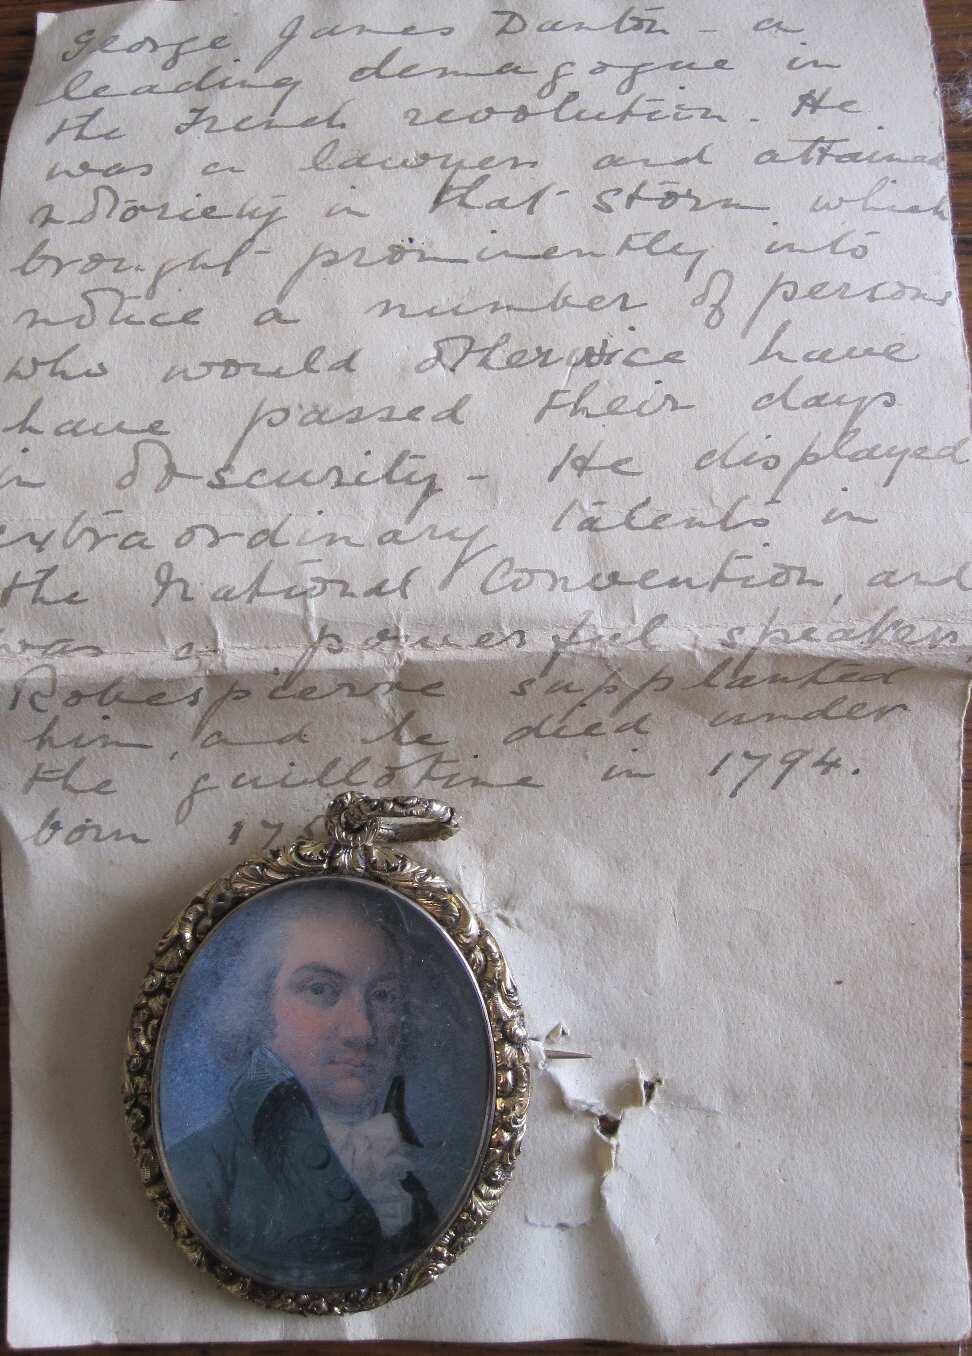 George James Danton - a
leading demagogue in
the French revolution. He
was a lawyer and attained
notoriety in that storm which
brought prominently into
notice a number of persons
who would otherwice have
have passed their days
in obscurity - He displayed
extraordinary talents in
the National Convention, and
was a powerful speaker.
Robespierre supplanted
him, and he died under
the guillotine in 1794.
born 175